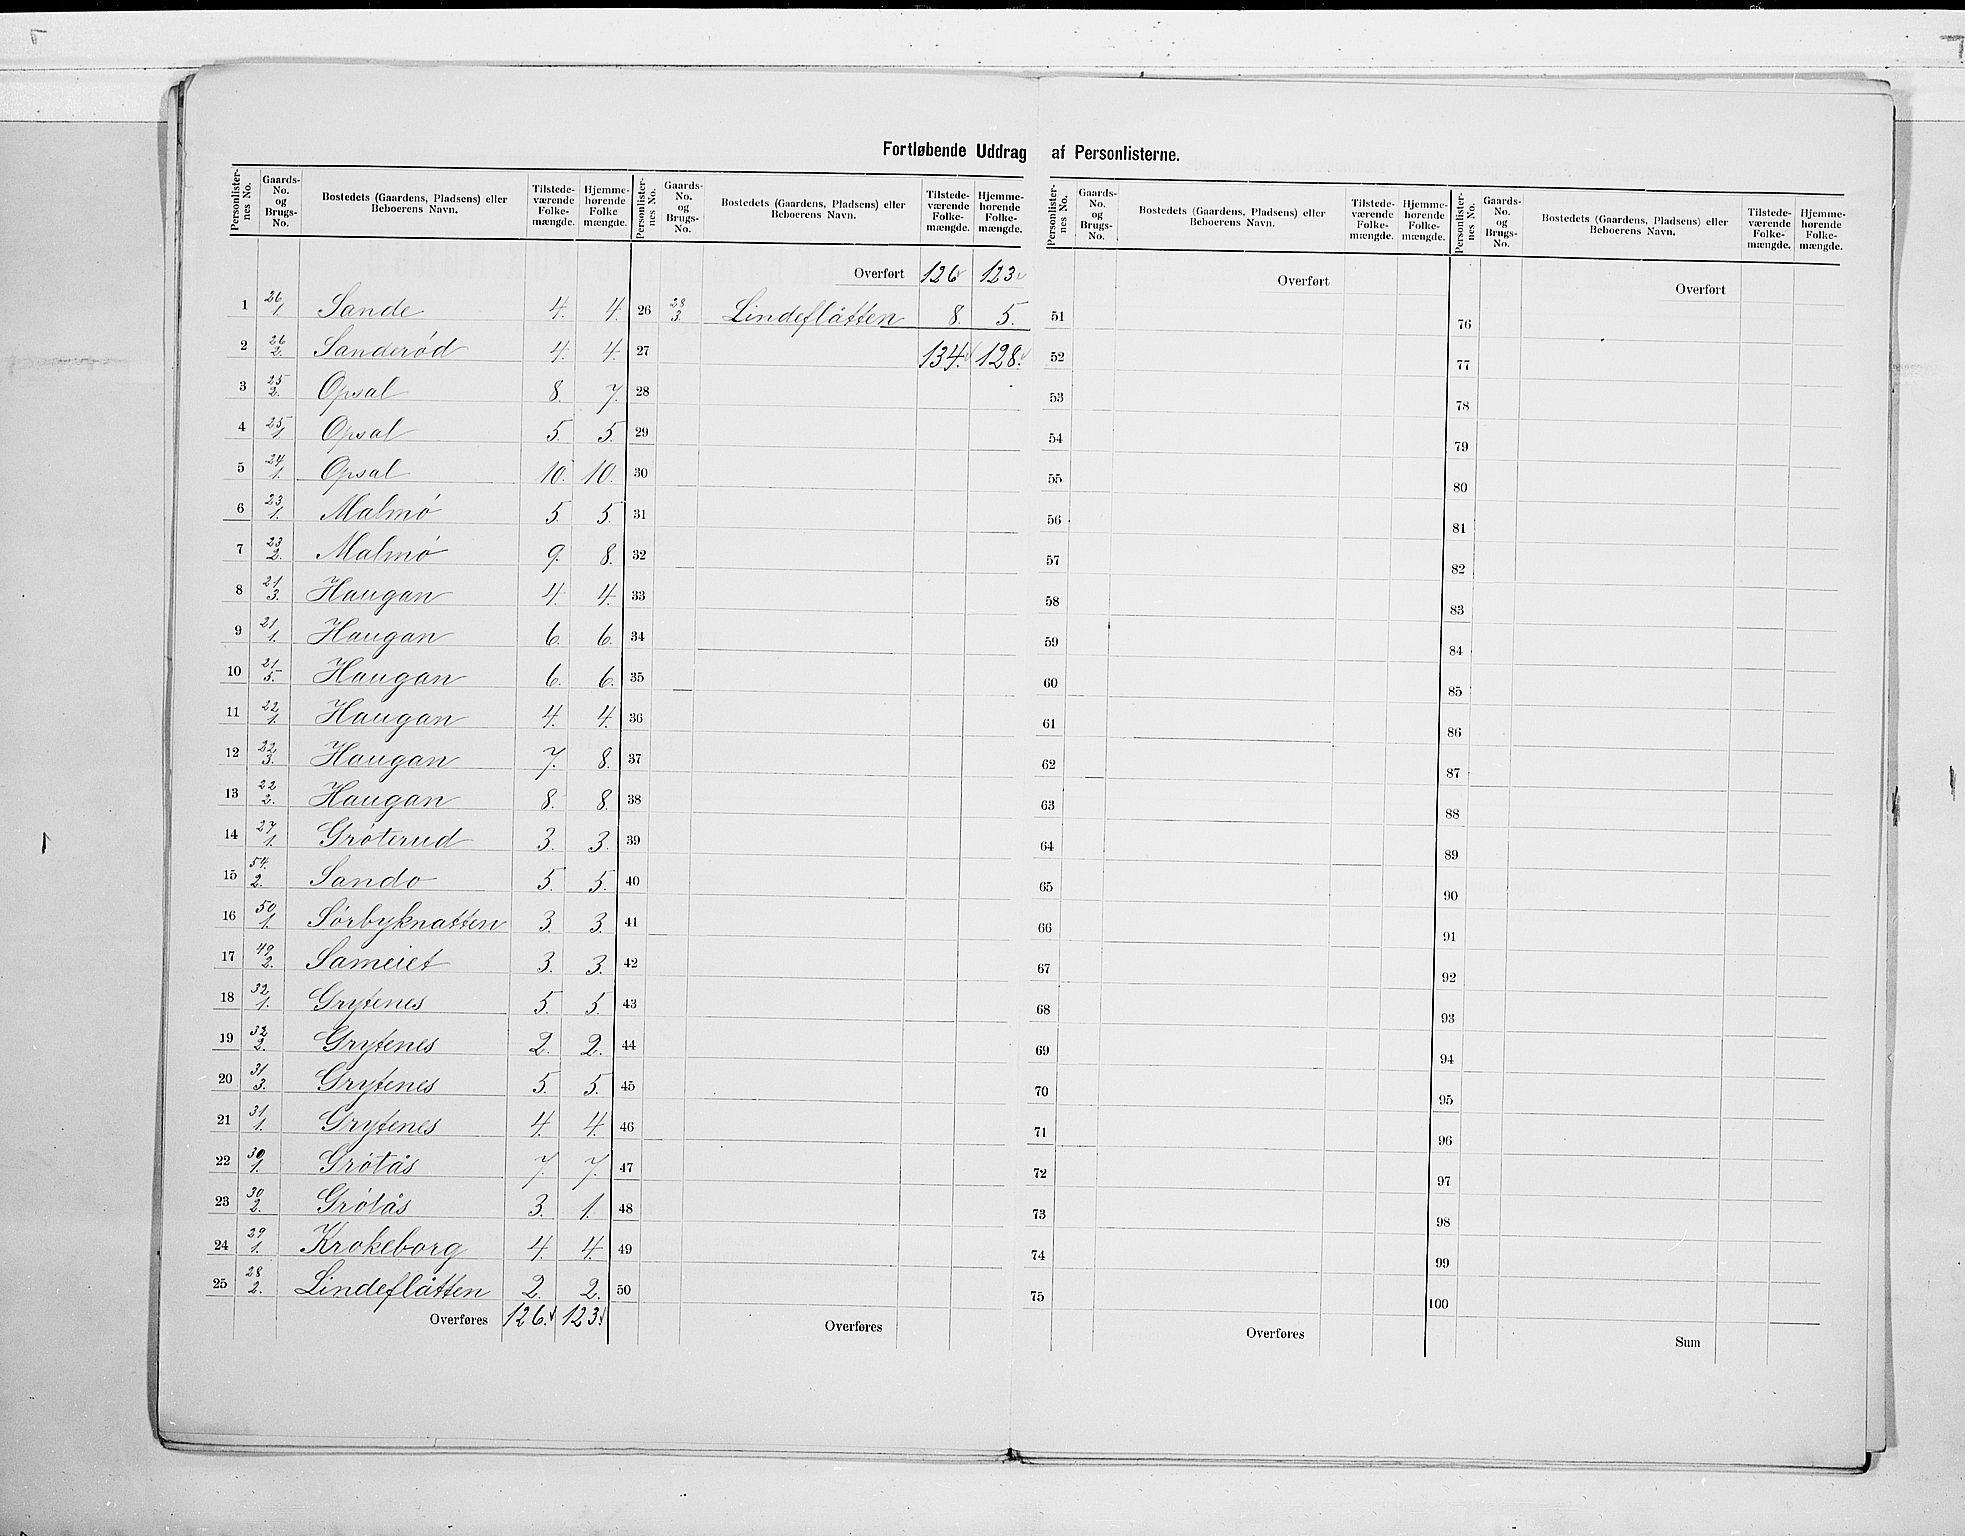 Fortløbende Uddrag af Personlisterne.
Personlister-nes No. Gaards-No. og Brugs-No. Bostedets (Gaardens, Pladsens) eller Beboerens Navn. Tilstede-værende Folke-mængde. Hjemme-hørende Folke mængde.
1 26/1. Sande 4. 4.
2 26/2. Sanderød 4. 4.
3 25/2. Opsal 8. 7.
4 25/1 Opsal 5. 5.
5 24/1. Opsal 10. 10.
6 23/1. Malmø 5. 5.
7 23/2. Malmø 9. 8.
8 21/3. Haugan 4. 4.
9 21/1. Haugan 6. 6.
10 21/5. Haugan 6. 6.
11 22/1. Haugan 4. 4.
12 22/3. Haugan 7. 8.
13 22/2. Haugan 8. 8.
14 27/1. Grøterud 3. 3.
15 54./2. Sando 5. 5.
16 50/1. Sørbyknatten 3. 3.
17 49/2. Sameiet 3. 3.
18 32/1. Grytenes 5. 5.
19 32/2. Grytenes 2. 2.
20 31/3. Grytenes 5. 5.
21 31/1. Grytenes 4. 4.
22 30/1. Grøtås 7. 7.
23 30/2. Grøtås 3. 1.
24 29/1. Krokeborg 4. 4.
25 28/2. Lindeflåtten 2. 2.
Overføres 126. 123.
Personlister-nes No. Gaards-No. og Brugs-No. Bostedets (Gaardens, Pladsens) eller Beboerens Navn. Tilstede-værende Folke-mængde. Hjemme-hørende Folke-mængde.
Overført 126 123
26 28/3. Lindeflåtten 8. 5.
27 134. 128.
28
29
30
31
32
33
34
35
36
37
38
39
40
41
42
43
44
45
46
47
48
49
50
Overføres
Personlister-nes No. Gaards-No. og Brugs-No. Bostedets (Gaardens, Pladsens) eller Beboerens Navn. Tilstede-værende Folke-mængde. Hjemme-hørende Folke-mængde.
Overført
51
52
53
54
55
56
57
58
59
60
61
62
63
64
65
66
67
68
69
70
71
72
73
74
75
Overføres
Personlister-nes No. Gaards-No. og Brugs-No. Bostedets (Gaardens, Pladsens) eller Beboerens Navn. Tilstede-værende Folke-mængde. Hjemme-hørende Folke-mængde.
Overført
76
77
78
79
80
81
82
83
84
85
86
87
88
89
90
91
92
93
94
95
96
97
98
99
100
Sum